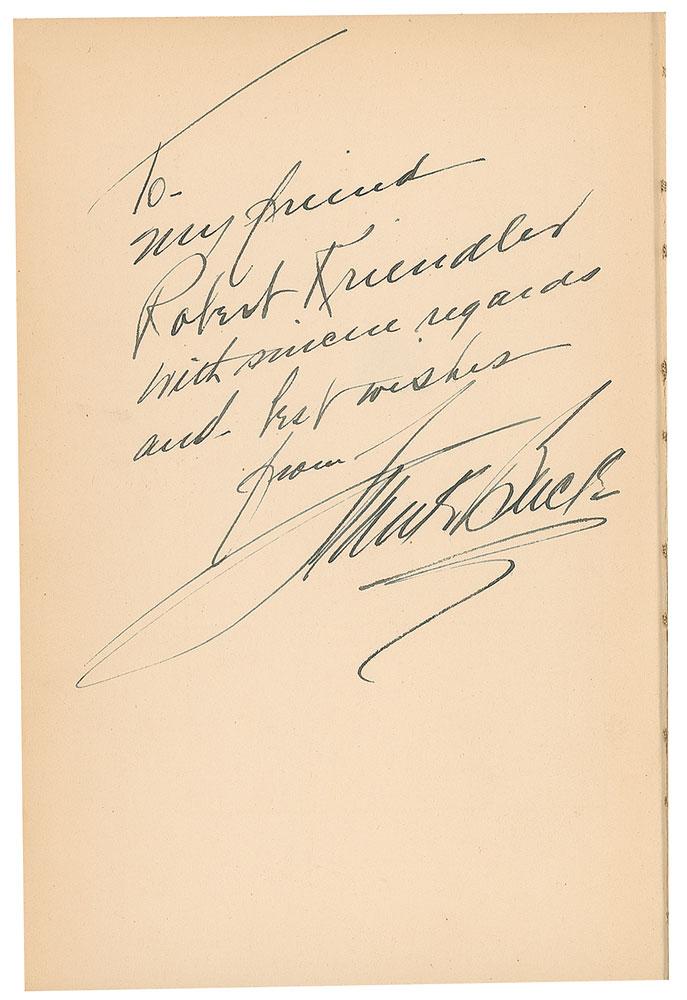 To-
my friend
Robert Kriendler
with sincere regards
and best wishes
from
Frank Buck